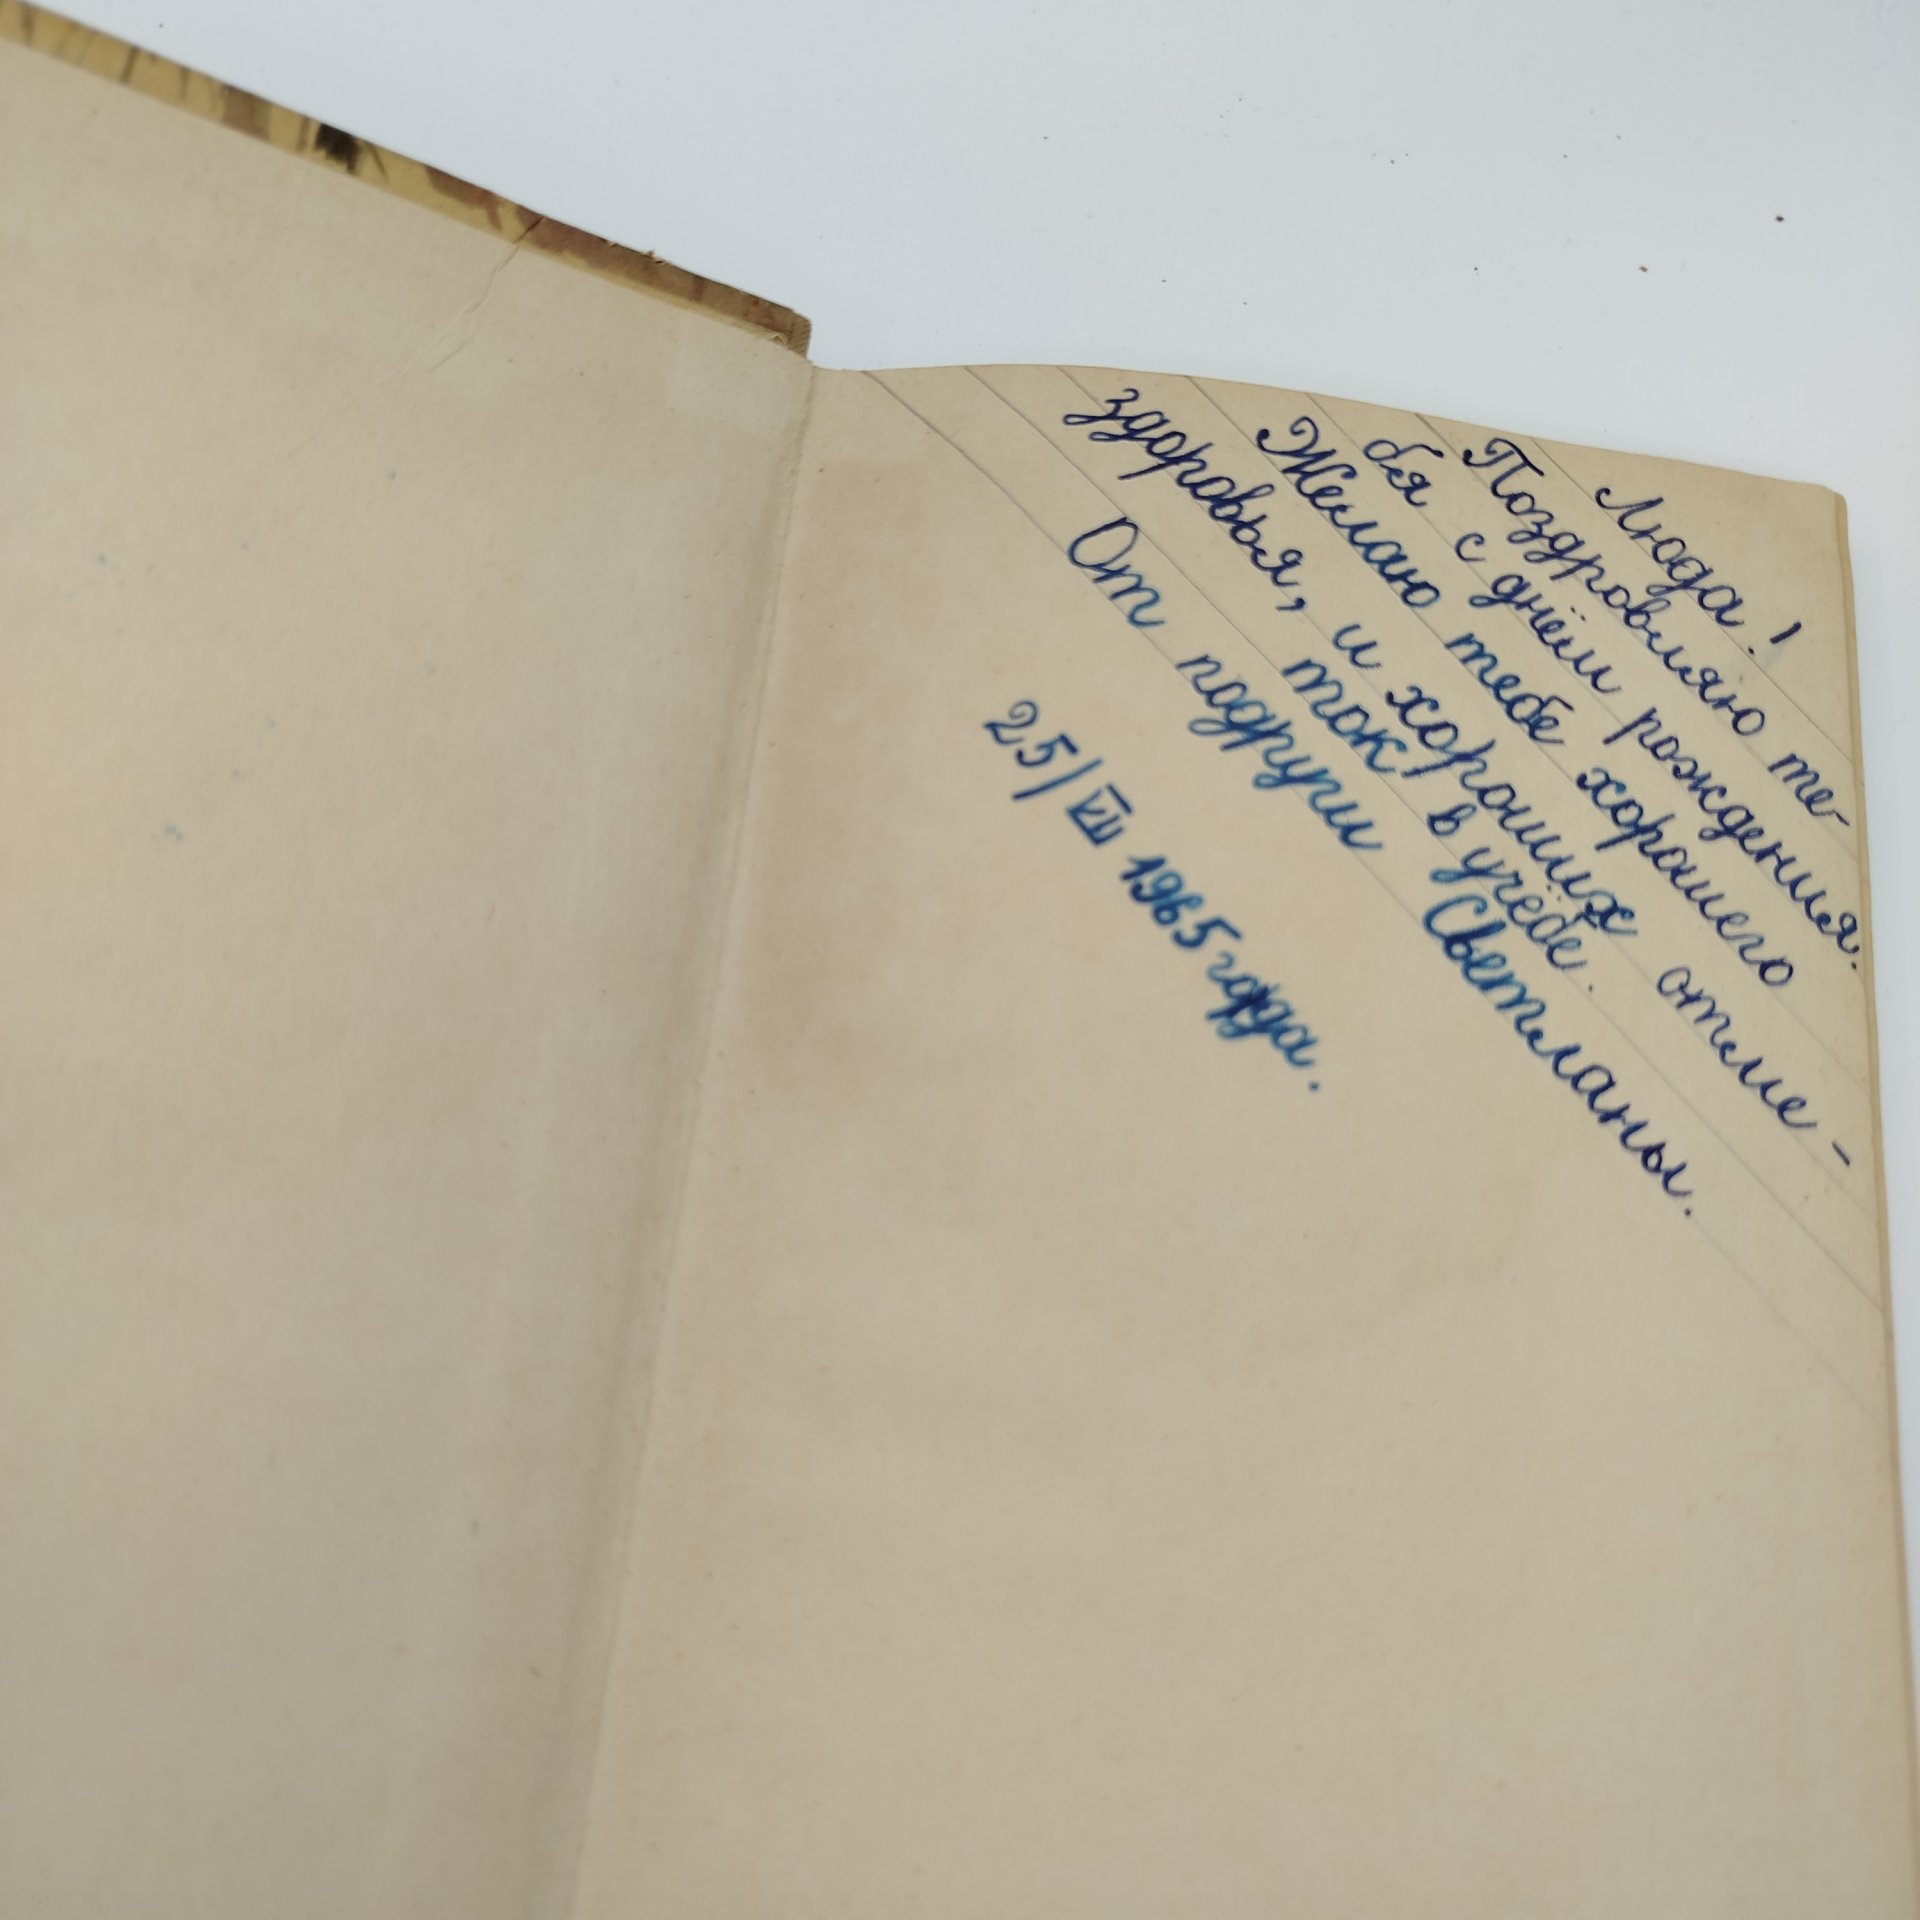 Люда!
Поздровляю те-
бя с днём рождения.
Желаю тебе хорошего
здоровья, и хороших отме-
ток в учёбе.
От подруги Светланы.
25/VII 1965 года.